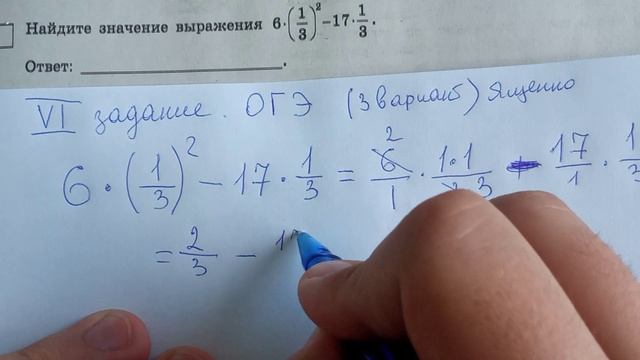 Найдите значение выражения 6·(1/3)²−17·1/3.
Ответ: ______________.
VI задание. ОГЭ (3 вариант) Ященко
6·(1/3)² − 17·1/3 = 6/1 2 · 1·1/3·3 − 17/1 · 1/3
= 2/3 −